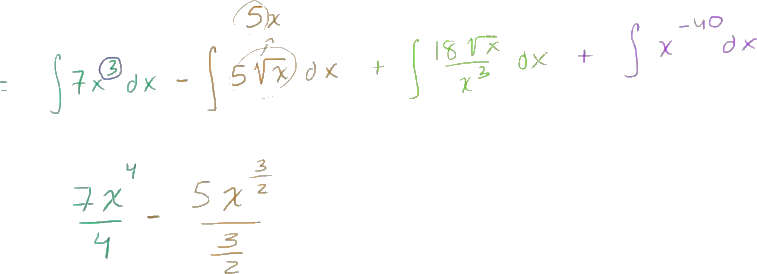 5x
= ∫ 7x³ dx - ∫ 5√x dx + ∫ 18√x / x³ dx + ∫ x⁻⁴⁰ dx
7x⁴ / 4 - 5x^(3/2) / (3/2)